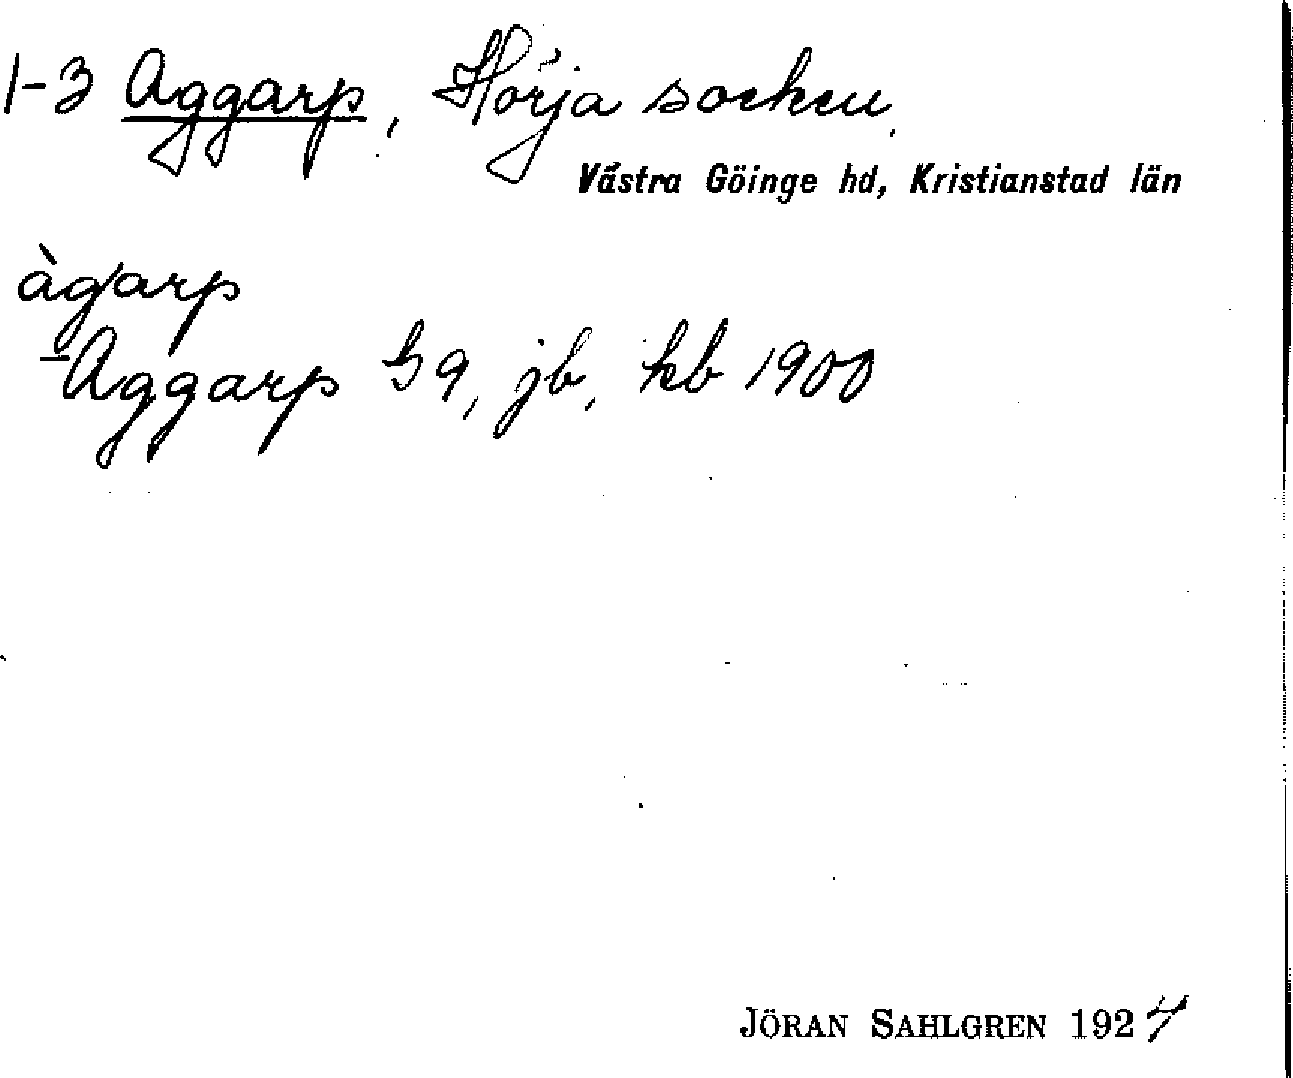 1-3 Aggarp, Hörja socken,
Västra Göinge hd, Kristianstad län
àgarp
Aggarp G9, jb, kb 1900
JÖRAN SAHLGREN 1924